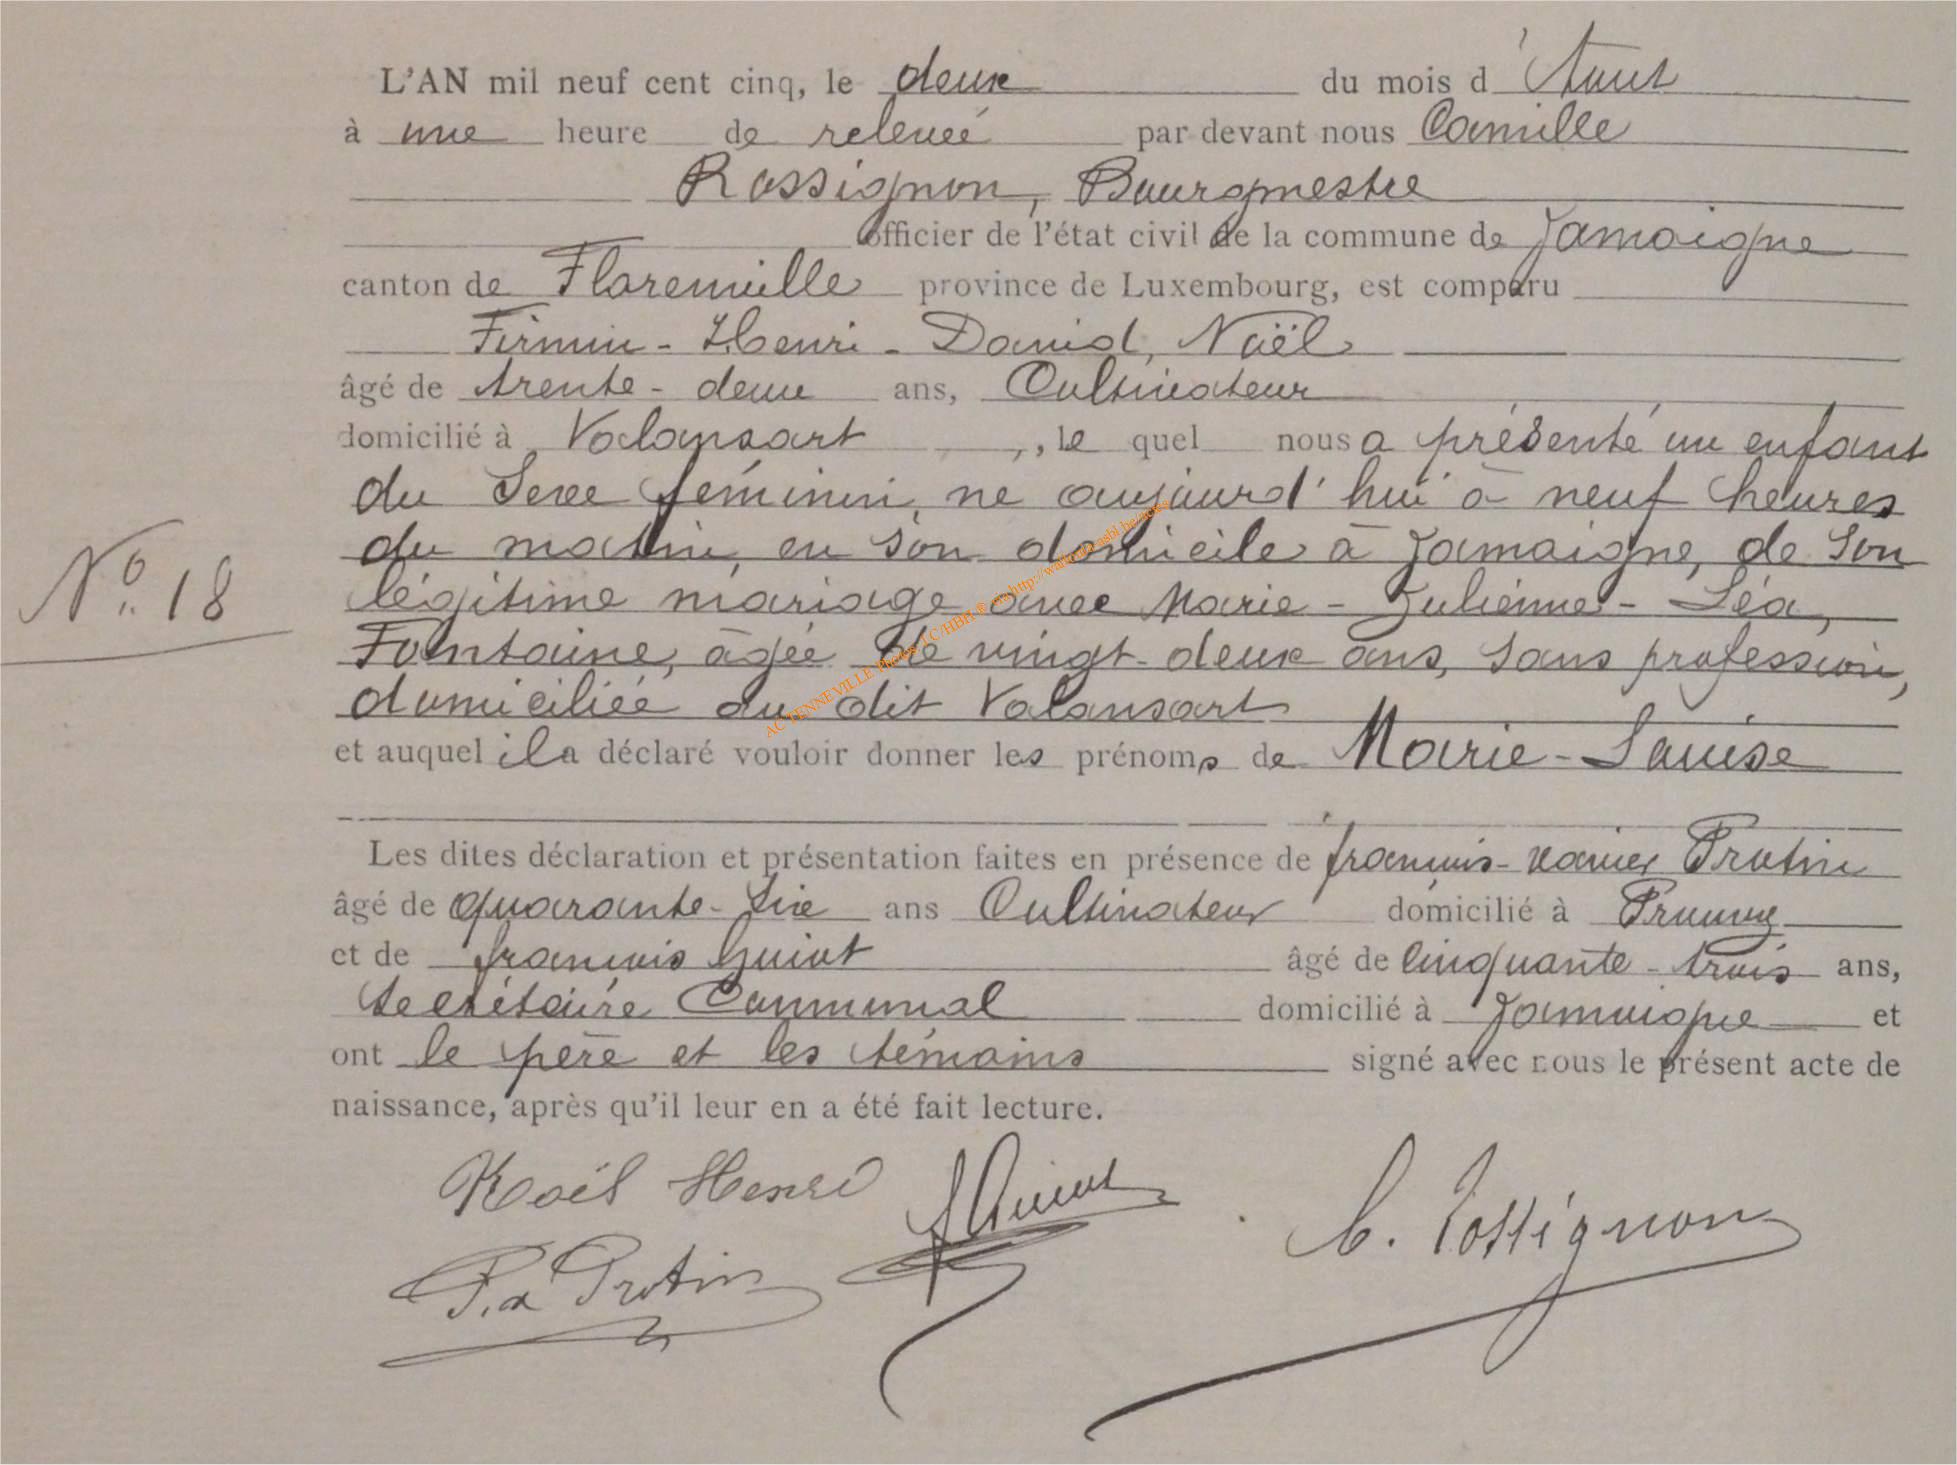 L'AN mil neuf cent cinq, le deux du mois d'Août
à une heure de relevée par devant nous Camille
Rossignon, Bourgmestre
officier de l'état civil de la commune de Jamoigne
canton de Florenville province de Luxembourg, est comparu
Firmin-Henri-Daniel, Noël
âgé de trente-deux ans, Cultivateur
domicilié à Valansart, le quel nous a présenté un enfant
du sexe féminin, né aujourd'hui à neuf heures
du matin, en son domicile à Jamoigne, de son
légitime mariage avec Marie-Julienne-Léa,
Fontaine, âgée de vingt-deux ans, sans profession,
domiciliée au dit Valansart
et auquel il a déclaré vouloir donner les prénoms de Marie-Louise
Les dites déclaration et présentation faites en présence de françois-xavier Protin
âgé de quarante-six ans Cultivateur domicilié à Prouvy
et de françois Guiot âgé de cinquante-trois ans,
secrétaire Communal domicilié à Jamoigne et
ont le père et les témoins signé avec nous le présent acte de
naissance, après qu'il leur en a été fait lecture.
Nº 18
Noël Henri
f Guiot
C. Rossignon
F. x Protin
AC TENNEVILLE Photos LC/HBH © cm http://wallonia-asbl.be/actes